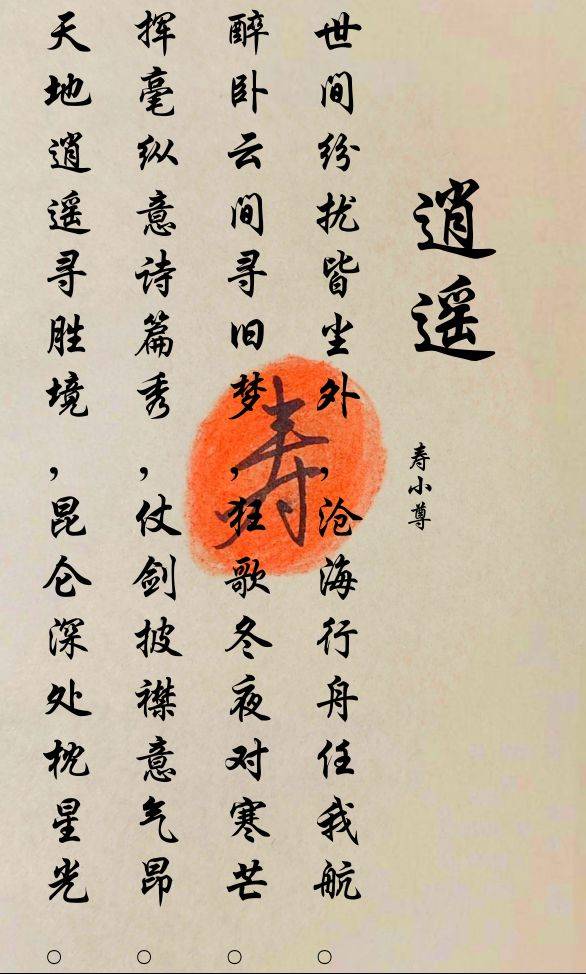 逍遥
寿小尊
世间纷扰皆坐外，沧海行舟任我航。
醉卧云间寻旧梦，狂歌冬夜对寒芒。
挥毫纵意诗篇秀，仗剑披襟意气昂。
天地逍遥寻胜境，昆仑深处枕星光。
寿